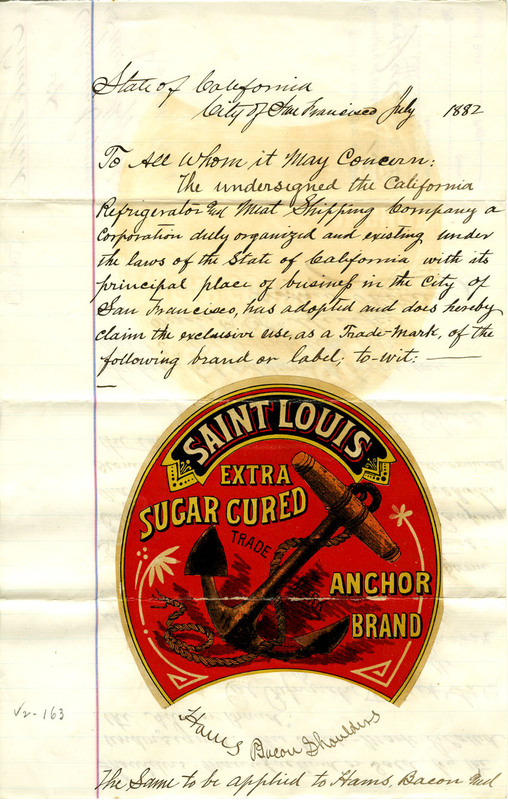 State of California
City of San Francisco July 1882
To All Whom it May Concern:
The undersigned the California
Refrigerator and Meat Shipping Company a
Corporation duly organized and existing under
the laws of the State of California with its
principal place of business in the City of
San Francisco, has adopted and does hereby
claim the exclusive use, as a Trade-Mark, of the
following brand or label; to-wit: —
—
SAINT LOUIS
EXTRA
SUGAR CURED
TRADE
ANCHOR
BRAND
V2-163
Hams Bacon Shoulders
The Same to be applied to Hams, Bacon and